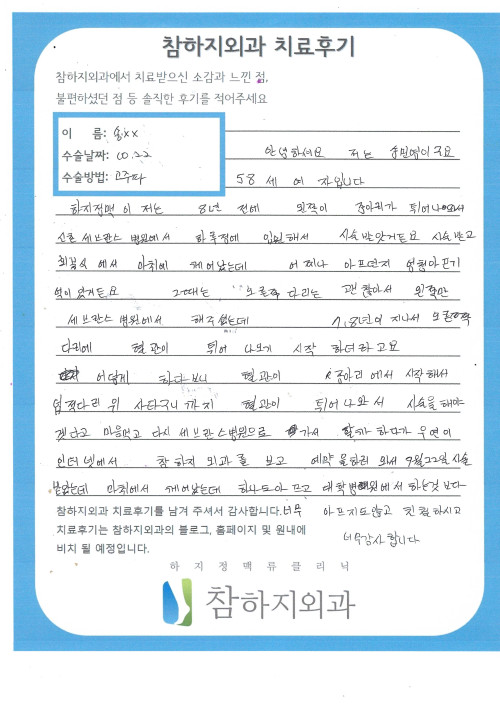 참하지외과 치료후기
참하지외과에서 치료받으신 소감과 느낀 점,
불편하셨던 점 등 솔직한 후기를 적어주세요
이 름: 송xx
수술날짜: 10.22
수술방법: 고주파
안녕하세요 저는 이구요
58 세 여 자입니다
하지정맥 이 저는 8년 전에 왼쪽이 종아리가 튀어나와서
신촌 세브란스 병원에서 하룩전에 입원해서 시술받았거든요 시술받고
회복실 에서 마취에 깨어났는데 어찌나 아프던지 엄청아픈기
억이 있거든요 그때는 오른쪽 다리는 괜찮아서 왼쪽만
세브란스병원에서 해주셨는데 7,8년이 지나서 오른쪽
다리에 혈관이 튀어 나오기 시작 하더라고요
어떻게 하다보니 혈관이 종아리에서 시작해서
허벅다리 위 사타구니까지 혈관이 튀어나와서 시술을해야
겠다고 마음먹고 다시 세브란스병원으로 가서 할까하다가 우연이
인터넷에서 참하지 외과를 보고 예약을하러 와서 9월22일 시술
받았는데 마취에서 깨어났는데 하나도아프고 대학병원에서 하는것보다
참하지외과 치료후기를 남겨 주셔서 감사합니다. 너무 아프지도않고 친절하시고
치료후기는 참하지외과의 블로그, 홈페이지 및 원내에 너무감사 합니다
비치 될 예정입니다.
하지정맥류클리닉
참하지외과